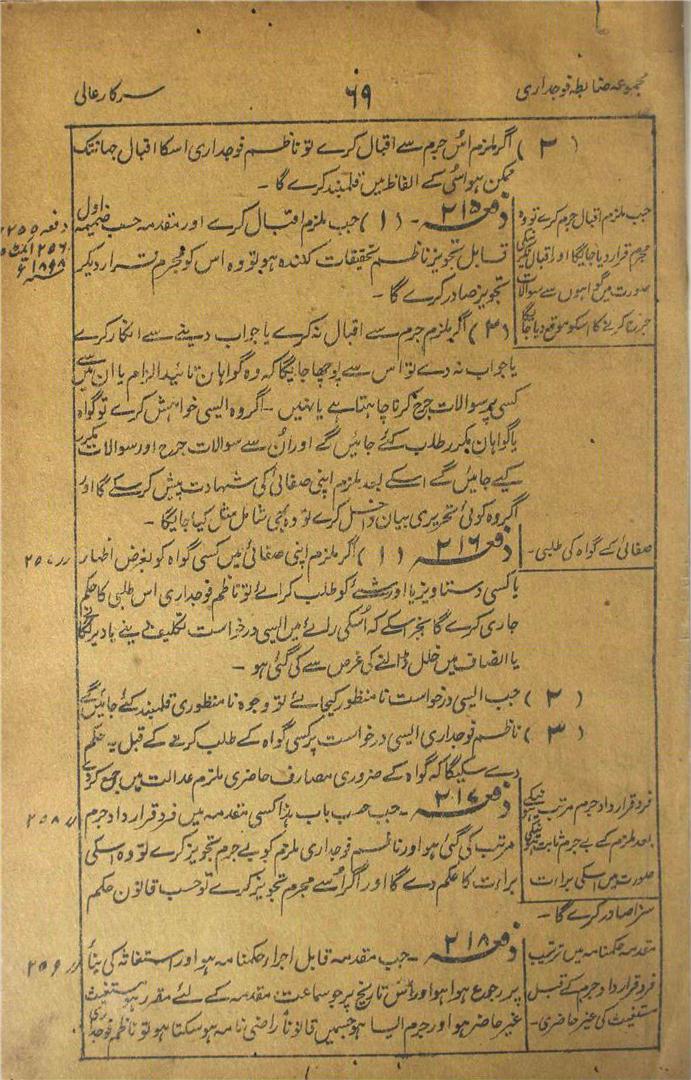 مجموعہ ضابطہ فوجداری
۶۹
سرکار عالی
( ۲ ) اگر ملزم اُس جرم سے اقبال کرے تو ناظم فوجداری اسکا اقبال جہانتک
ممکن ہو اُسی کے الفاظ میں قلمبند کرے گا ۔
دفعہ ۲۱۵ ۔ ( ۱ ) جب ملزم اقبال کرے اور مقدمہ حسب ضمیمہ اول
قابل تجویز ناظم تحقیقات کنندہ ہو تو وہ اس کو مجرم قرار دیکر
تجویز صادر کرے گا ۔
جب ملزم اقبال جرم کرے تو وہ
مجرم قرار دیا جائیگا اور اقبال نکرنیکی
صورت میں گواہوں سے سوالات
جرح کرنے کا اسکو موقع دیا جائیگا
دفعہ ۲۵۵ و
۲۵۶ ایکٹ ۵
۱۸۹۸ء
(۲) اگر ملزم جرم سے اقبال نہ کرے یا جواب دینے سے انکار کرے
یا جواب نہ دے تو اس سے پوچھا جائیگا کہ وہ گواہان تائید الزام یا ان میں سے
کسی پر سوالات جرح کرنا چاہتا ہے یا نہیں ۔ اگر وہ ایسی خواہش کرے تو گواہ
یا گواہان مکرر طلب کئے جائیں گے اور اُن سے سوالات جرح اور سوالات مکرر
کیے جائیں گے اسکے بعد ملزم اپنی صفائی کی شہادت پیش کر سکے گا اور
اگر وہ کوئی تحریری بیان داخل کرے تو وہ بھی شامل مثل کیا جائیگا ۔
دفعہ ۲۱۶ ( ۱ ) اگر ملزم اپنی صفائی میں کسی گواہ کو بغرض اظہار
صفائی کے گواہ کی طلبی ۔
رر ۲۵۷
یا کسی دستاویز یا اور شئے کو طلب کرائے تو ناظم فوجداری اس طلبی کا حکم
جاری کرے گا بجز اسکے کہ اُسکی رائے میں ایسی درخواست تکلیف دینے یا دیر لگانے
یا انصاف میں خلل ڈالنے کی غرض سے کی گئی ہو ۔
( ۲ ) جب ایسی درخواست نامنظور کیجائے تو وجوہ نامنظوری قلمبند کئے جائیں گے
( ۳ ) ناظم فوجداری ایسی درخواست پر کسی گواہ کے طلب کرنے کے قبل یہ حکم
دے سکیگا کہ گواہ کے ضروری مصارف حاضری ملزم عدالت میں جمع کر دے
دفعہ ۲۱۷ ۔ جب حسب باب ہذا کسی مقدمہ میں فرد قرارداد جرم
مرتب کی گئی ہو اور ناظم فوجداری ملزم کو بے جرم تجویز کرے تو وہ اسکی
براءت کا حکم دے گا اور اگر اُسے مجرم تجویز کرے تو حسب قانون حکم
سزا صادر کرے گا ۔
فرد قرارداد جرم مرتب ہونیکے
بعد ملزم کے بے جرم ثابت ہونیکی
صورت میں اسکی براءت
رر ۲۵۸
دفعہ ۲۱۸ ۔ جب مقدمہ قابل اجرار حکمنامہ ہو اور استغاثہ کی بنأ
پر رجوع ہوا ہو اور اُس تاریخ پر جو سماعت مقدمہ کے لئے مقرر ہو مستغیث
غیر حاضر ہو اور جرم ایسا ہو جسمیں قانوناً راضی نامہ ہو سکتا ہو تو ناظم فوجداری
مقدمہ حکمنامہ میں ترتیب
فرد قرارداد جرم کے قبل
مستغیث کی غیر حاضری ۔
رر ۲۵۹